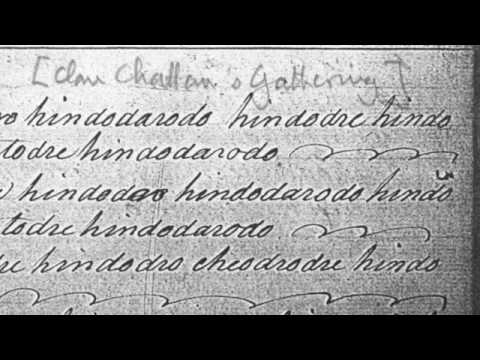 [Clan Chattan's Gathering]
hindodarodo hindodre hindo
todre hindodarodo
hindodarodo hindo
todre hindodarodo
dre hindodro cheodrodre hindo